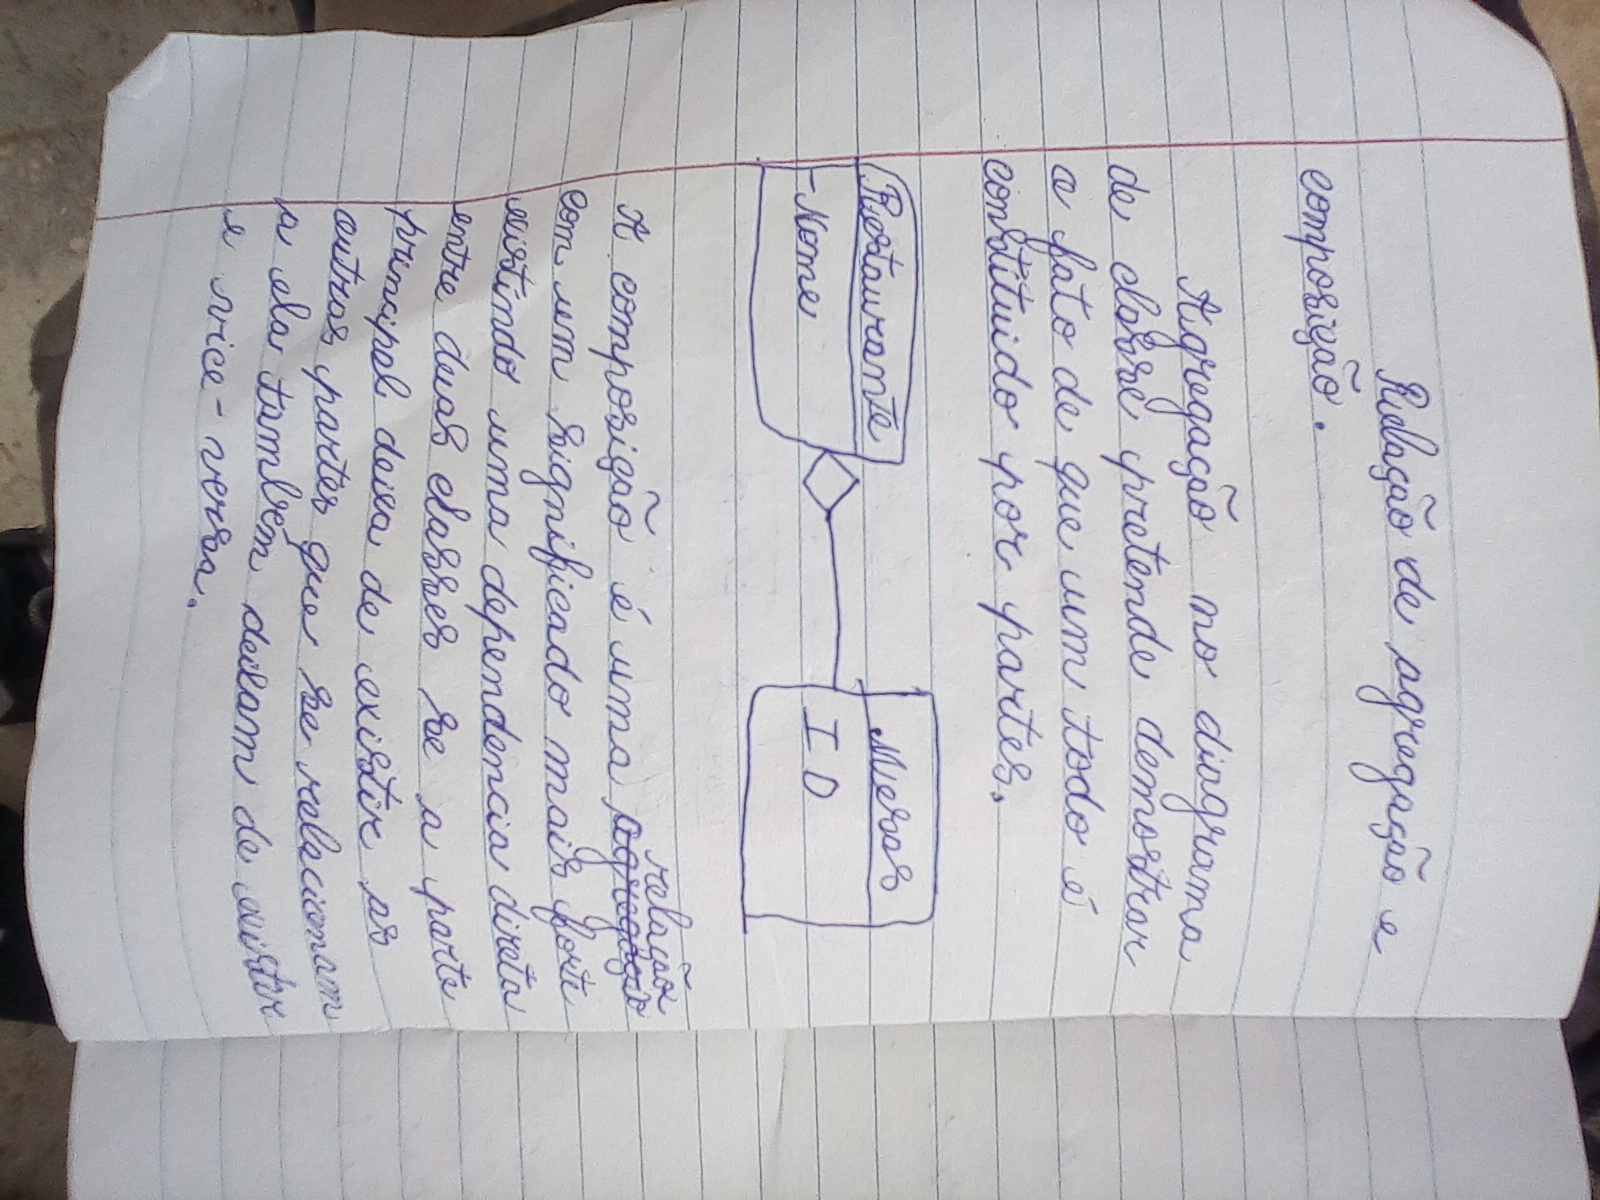 Relação de agregação e
composição.
Agregação no diagrama
de classe pretende demostrar
a fato de que um todo é
constituido por partes.
Restaurante
Mesas
-Nome
ID
relação
A composição é uma agregação
com um significado mais forte
existindo uma dependencia direta
entre duas classes se a parte
principal deixa de existir as
outras partes que se relacionam
a ela também deixam de existir
e vice-versa.